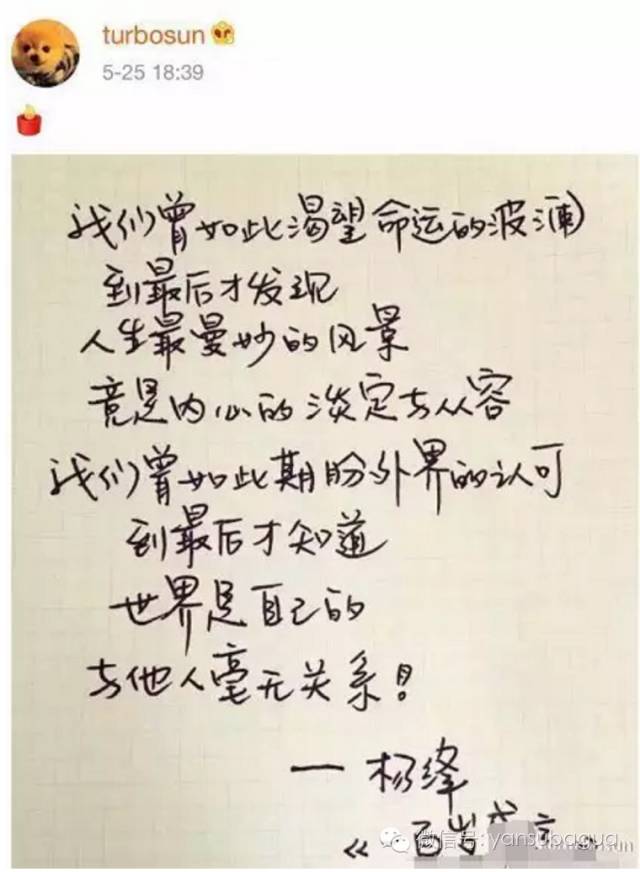 turbosun
5-25 18:39
我们曾如此渴望命运的波澜
到最后才发现
人生最曼妙的风景
竟是内心的淡定与从容
我们曾如此期盼外界的认可
到最后才知道
世界是自己的
与他人毫无关系！
— 杨绛
《百岁感言》
微信号: yansubagua